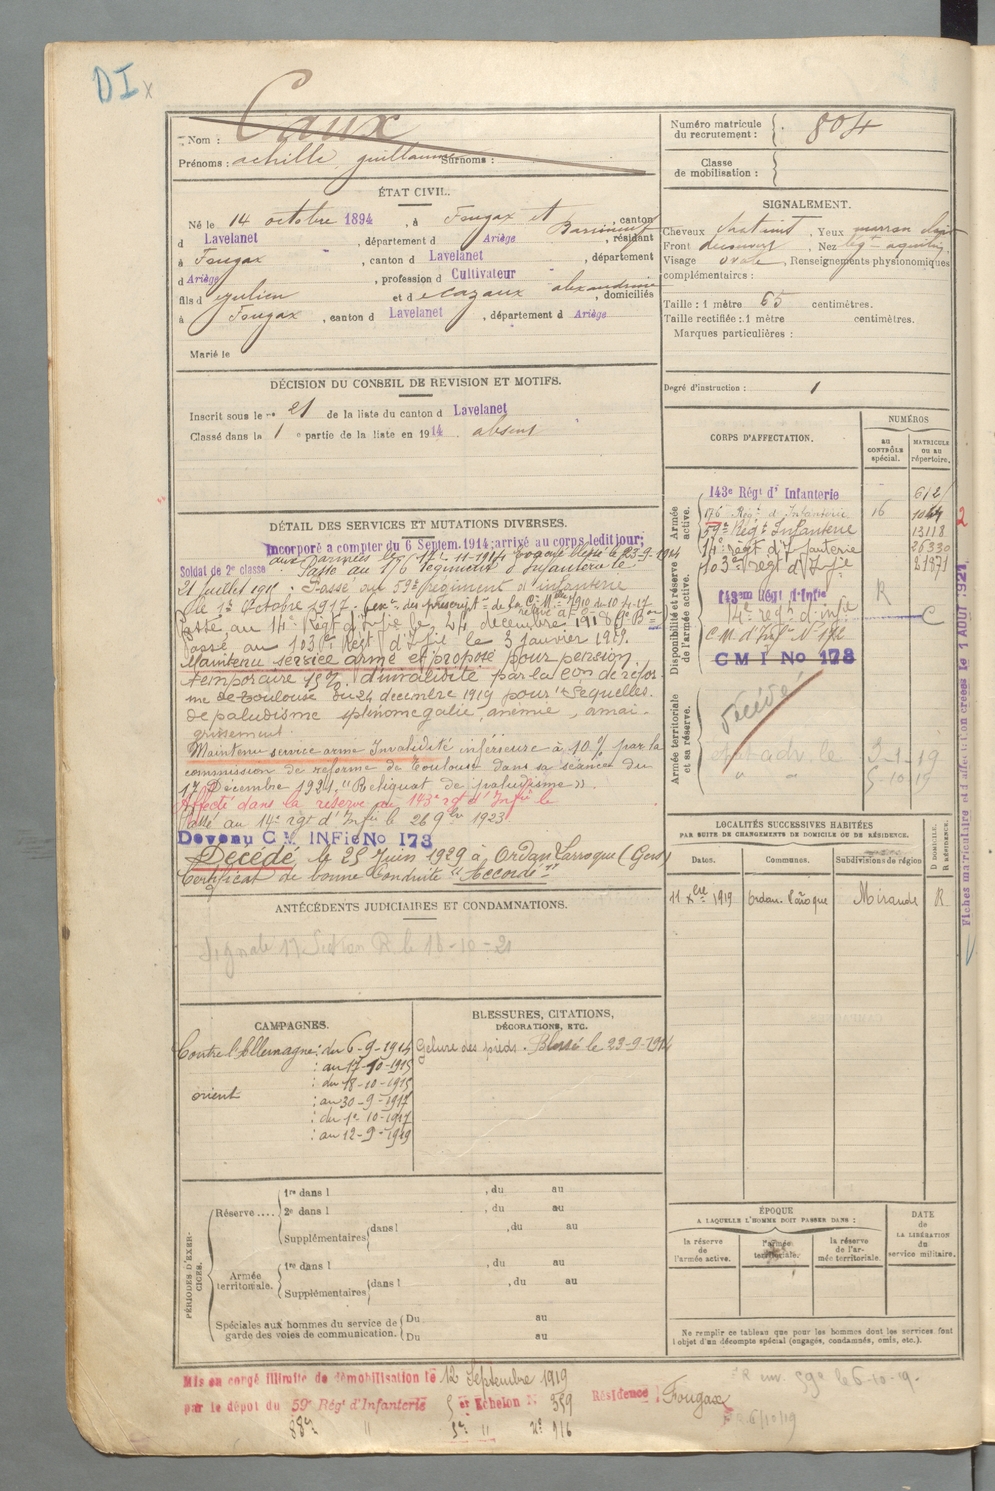 DI x
Nom : Caux
Prénoms : achille, guillaume Surnoms :
Numéro matricule du recrutement : 804
Classe de mobilisation :
ÉTAT CIVIL.
Né le 14 octobre 1894, à Fougax et Barrineuf, canton
d Lavelanet, département d Ariège, résidant
à Fougax, canton d Lavelanet, département
d Ariège, profession d Cultivateur
fils d Julien et d Cazaux alexandrine, domiciliés
à Fougax, canton d Lavelanet, département d Ariège
Marié le
SIGNALEMENT.
Cheveux chatint, Yeux marron clair
Front découvert, Nez leg-t aquilin
Visage ovale, Renseignements physionomiques
complémentaires :
Taille : 1 mètre 65 centimètres.
Taille rectifiée : 1 mètre centimètres.
Marques particulières :
Degré d'instruction : 1
DÉCISION DU CONSEIL DE REVISION ET MOTIFS.
Inscrit sous le n° 21 de la liste du canton d Lavelanet
Classé dans la 1 e partie de la liste en 1914. absent
DÉTAIL DES SERVICES ET MUTATIONS DIVERSES.
Incorporé a compter du 6 Septem. 1914; arrivé au corps ledit jour;
aux armées le 17-11-1914 blessé le 23-9-1914
Soldat de 2e classe Passé au 176 Régiment d'Infanterie le
21 juillet 1915. Passé au 59e régiment d'infanterie
le 1er Octobre 1917.
Passé au 14e Régt d'Infie le 24 décembre 1918
Passé au 103e Régt d'Infie le 3 janvier 1919.
Maintenu service armé et proposé pour pension
temporaire 15% d'invalidité par la con de réfor-
me de Toulouse du 24 decembre 1919 pour "Sequelles
de paludisme splénomégalie, anémie, amai-
grissement.
Maintenu service armé Invalidité inférieure à 10% par la
commission de réforme de Toulouse dans sa séance du
17 Décembre 1921. "Reliquat de paludisme".
Affecté dans la réserve au 143e rgt d'Infie le
Passé au 14e rgt d'Infie le 26 9bre 1923
Devenu C M INFie No 173
Décédé le 25 Juin 1929 à Ordan Larroque (Gers)
Certificat de bonne Conduite "Accordé"
CORPS D'AFFECTATION.
NUMÉROS
au CONTRÔLE spécial.
MATRICULE OU AU répertoire.
Armée active.
143e Régt d'Infanterie
176e Régt d'Infanterie 16
59e Régt Infanterie 13118
14e Régt d'Infanterie 26330
103e Régt d'Infie 31871
Disponibilité et réserve de l'armée active.
143em Régt d'Infie R
14e régt d'infie C
C M d'Infie No 172
C M I No 173
Armée territoriale et sa réserve.
Décédé
3-1-19
5-10-19
LOCALITÉS SUCCESSIVES HABITÉES
PAR SUITE DE CHANGEMENTS DE DOMICILE OU DE RÉSIDENCE.
Dates. Communes. Subdivisions de région D DOMICILE. R RÉSIDENCE.
11 Xbre 1919 Ordan-Larroque Mirande R
Fiches matriculaire et d'affectation créées le 1 AOUT 1921
2
ANTÉCÉDENTS JUDICIAIRES ET CONDAMNATIONS.
CAMPAGNES.
Contre l'Allemagne : du 6-9-1914
: au 17-10-1915
orient : du 18-10-1915
: au 30-9-1917
: du 1er 10-1917
: au 12-9-1919
BLESSURES, CITATIONS,
DÉCORATIONS, ETC.
Gelure des pieds. Blessé le 23-9-1914
PÉRIODES D'EXERCICES.
Réserve....
1re dans l , du au
2e dans l , du au
Supplémentaires dans l , du au
Armée territoriale.
1re dans l , du au
Supplémentaires dans l , du au
Spéciales aux hommes du service de
garde des voies de communication.
Du au
Du au
ÉPOQUE
A LAQUELLE L'HOMME DOIT PASSER DANS :
la réserve de l'armée active.
l'armée territoriale.
la réserve de l'armée territoriale.
DATE de LA LIBÉRATION du service militaire.
Ne remplir ce tableau que pour les hommes dont les services font
l'objet d'un décompte spécial (engagés, condamnés, omis, etc.).
Mis en congé illimité de démobilisation le 12 Septembre 1919
par le dépot du 59e Régt d'Infanterie 5 er Echelon N° 359 Résidence : Fougax
88e " 5e " N° 916
R env. 59e le 6-10-19.
6/10/19